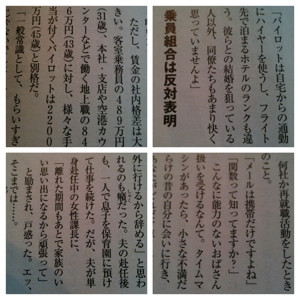 「パイロットは自宅からの通勤
にハイヤーを使うし、フライト
先で泊まるホテルのランクも違
う。彼らとの結婚を狙っている
人以外、同僚たちもあまり快く
思っていませんよ」
乗員組合は反対表明
ただし、賃金の社内格差は大
きい。客室乗務員の489万円
(31歳)本社・支店や空港カウ
ンターなどで働く地上職の84
6万円(43歳)に対し、様々な手
当が付くパイロットは2200
万円(45歳)と別格だ。
「一般常識として、もらいすぎ
何社か再就職活動をしたとき
のこと。
「メールは携帯だけですよね」
「関数って知ってますか?」
こんなに能力のないおばさん
扱いを受けるなんて。タイムマ
シンがあったら、小さな不満だ
らけの昔の自分に会いに行き、
外に行けるから辞める」と思わ
れるのも癪だった。夫の赴任後
も、一人で息子を保育園に預け
て仕事を続けた。だが、夫が単
身赴任中の女性課長に、
「離れた期間もあとで家族のい
い思い出になるから頑張って」
と励まされ、戸惑った。エッ、
そこまでは……。